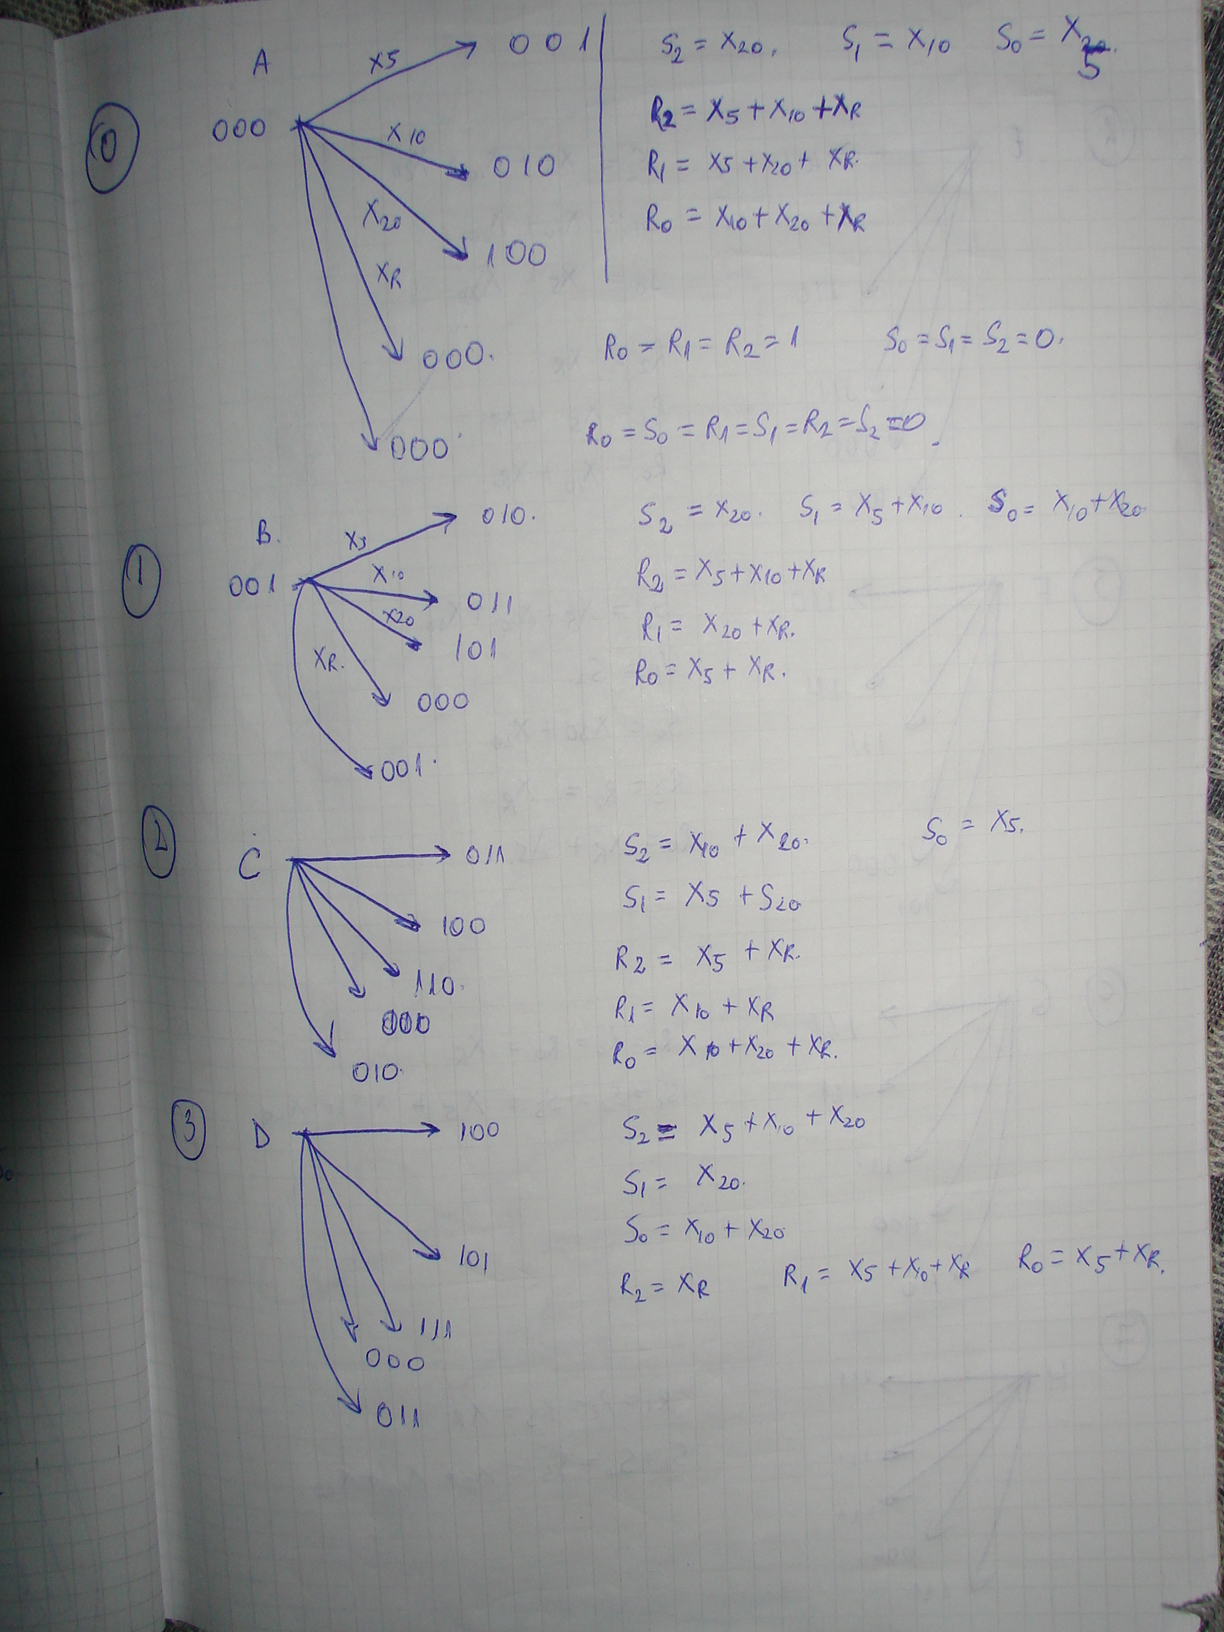 A
0
000
x5
001
x10
010
x20
100
xR
000.
000
S2 = x20. S1 = x10 S0 = x20. 5
R2 = x5 + x10 + xR
R1 = x5 + x20 + xR.
R0 = x10 + x20 + xR
R0 = R1 = R2 = 1 S0 = S1 = S2 = 0.
R0 = S0 = R1 = S1 = R2 = S2 = 0.
B.
1
001
x5
010.
x10
011
x20
101
xR.
000
001.
S2 = x20. S1 = x5 + x10. S0 = x10 + x20.
R2 = x5 + x10 + xR
R1 = x20 + xR.
R0 = x5 + xR.
2
C
011
100
110.
000
010.
S2 = x10 + x20. S0 = x5.
S1 = x5 + S20
R2 = x5 + xR.
R1 = x10 + xR
R0 = x10 + x20 + xR.
3
D
100
101
111
000
011
S2 = x5 + x10 + x20
S1 = x20.
S0 = x10 + x20
R2 = xR R1 = x5 + x10 + xR R0 = x5 + xR.